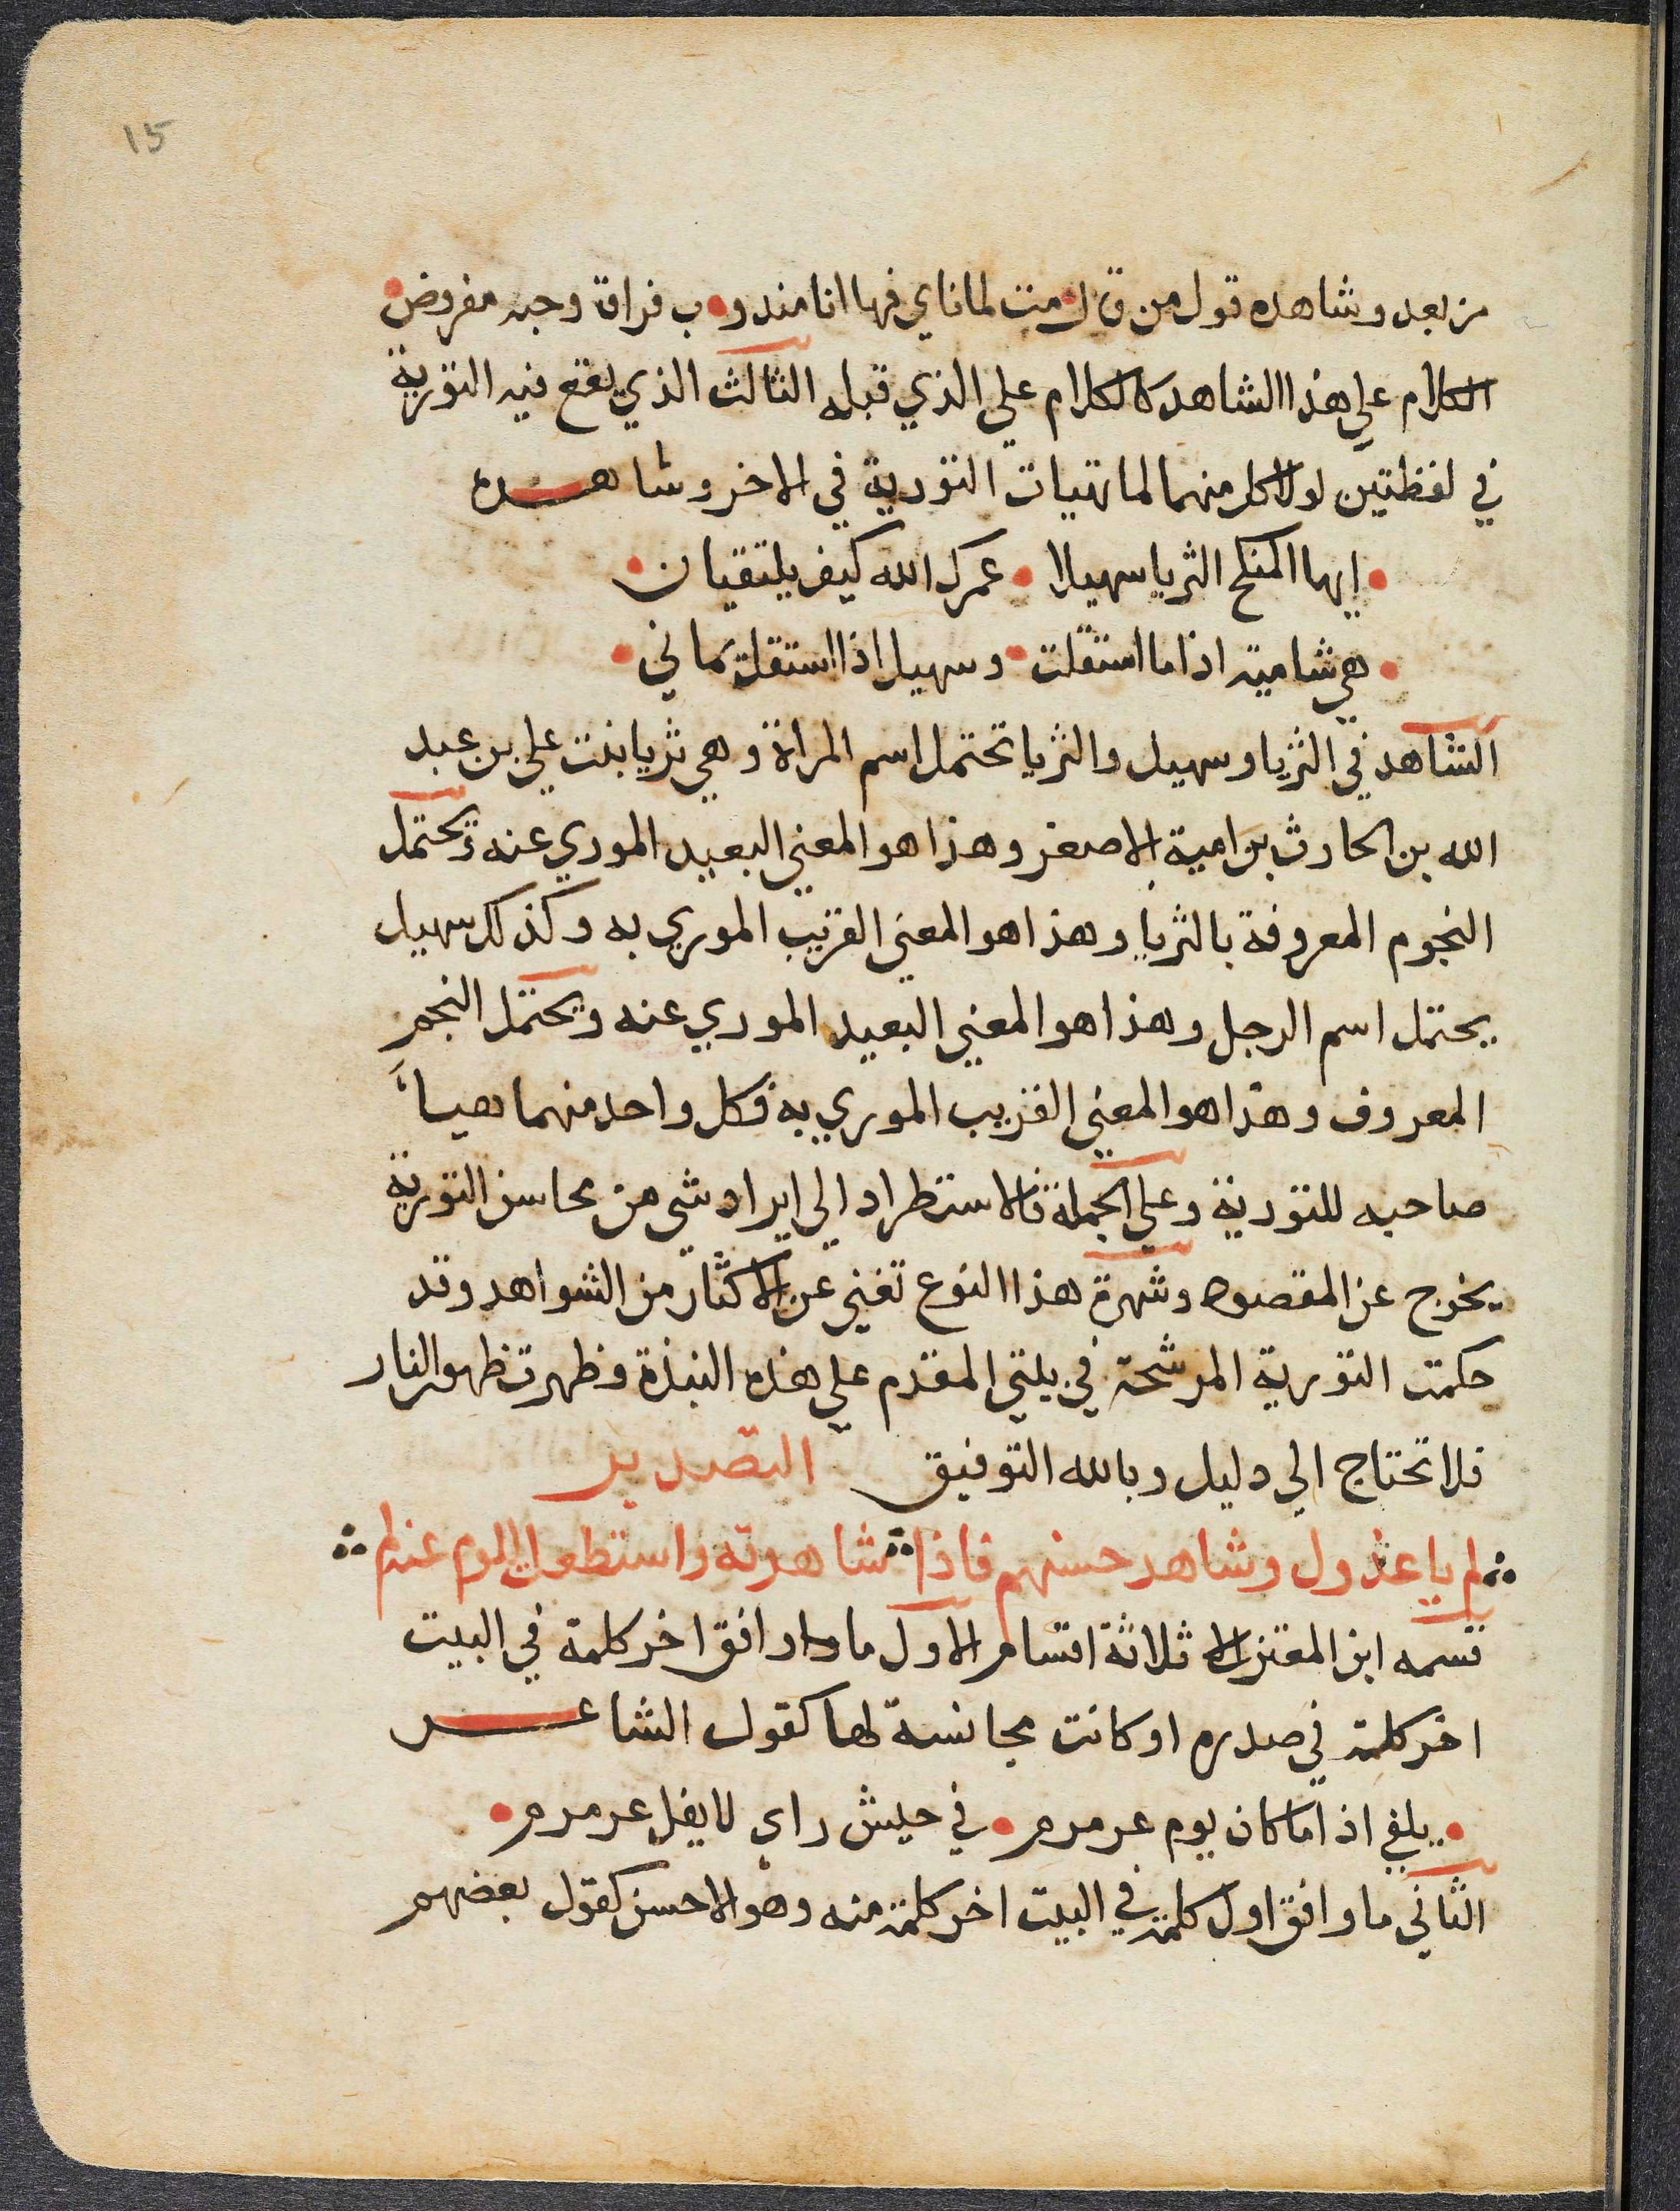 15
من بعد وشاهده قول من قال • مت لما ناي فها انا مندو • ب فراق وجبه مفروض •
الكلام علي هذا الشاهد كالكلام علي الذي قبله الثالث الذي يقع فيه التورية
في لفظتين لولا كل منهما لما تهيات التورية في الاخر وشاهده
• ايها المنكح الثريا سهيلا • عمرك الله كيف يلتقيان •
• هي شامية اذا ما استقلت • وسهيل اذا استقل يماني •
الشاهد في الثريا وسهيل والثريا تحتمل اسم المراة وهي ثريا بنت علي بن عبد
الله بن الحارث بن امية الاصغر وهذا هو المعني البعيد الموري عنه وتحتمل
النجوم المعروفة بالثريا وهذا هو المعني القريب الموري به وكذلك سهيل
يحتمل اسم الرجل وهذا هو المعني البعيد الموري عنه ويحتمل النجم
المعروف وهذا هو المعني القريب الموري به فكل واحد منهما هيأ
صاحبه للتورية وعلي الجملة فالاستطراد الي ايراد شي من محاسن التورية
يخرج عن المقصود وشهرة هذا النوع تغني عن الاكثار من الشواهد وقد
حكمت التورية المرشحة في بيتي المقدم علي هذه النبذة وظهرت ظهور النار
فلا تحتاج الي دليل وبالله التوفيق التصدير
لم يا عذول وشاهد حسنهم فاذا شاهدته واستطعت اللوم عند لم
قسمه ابن المعتز الا ثلاثة اقسام الاول ما وافق اخر كلمة في البيت
اخر كلمة في صدره او كانت مجانسة لها كقول الشاعر
• يلفي اذا ما كان يوم عرمرم • في جيش راي لا يفل عرمرم •
الثاني ما وافق اول كلمة في البيت اخر كلمة منه وهو الاحسن كقول بعضهم